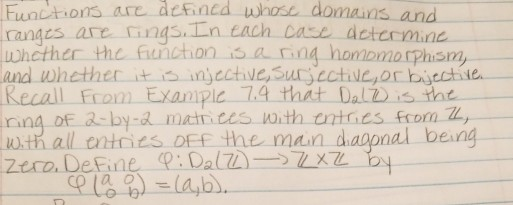 Functions are defined whose domains and
ranges are rings. In each case determine
whether the function is a ring homomorphism,
and whether it is injective, surjective, or bijective.
Recall From Example 7.9 that D₂(ℤ) is the
ring of 2-by-2 matrices with entries from ℤ,
with all entries off the main diagonal being
zero. Define φ: D₂(ℤ) → ℤ×ℤ by
φ(a 0 0 b) = (a,b).